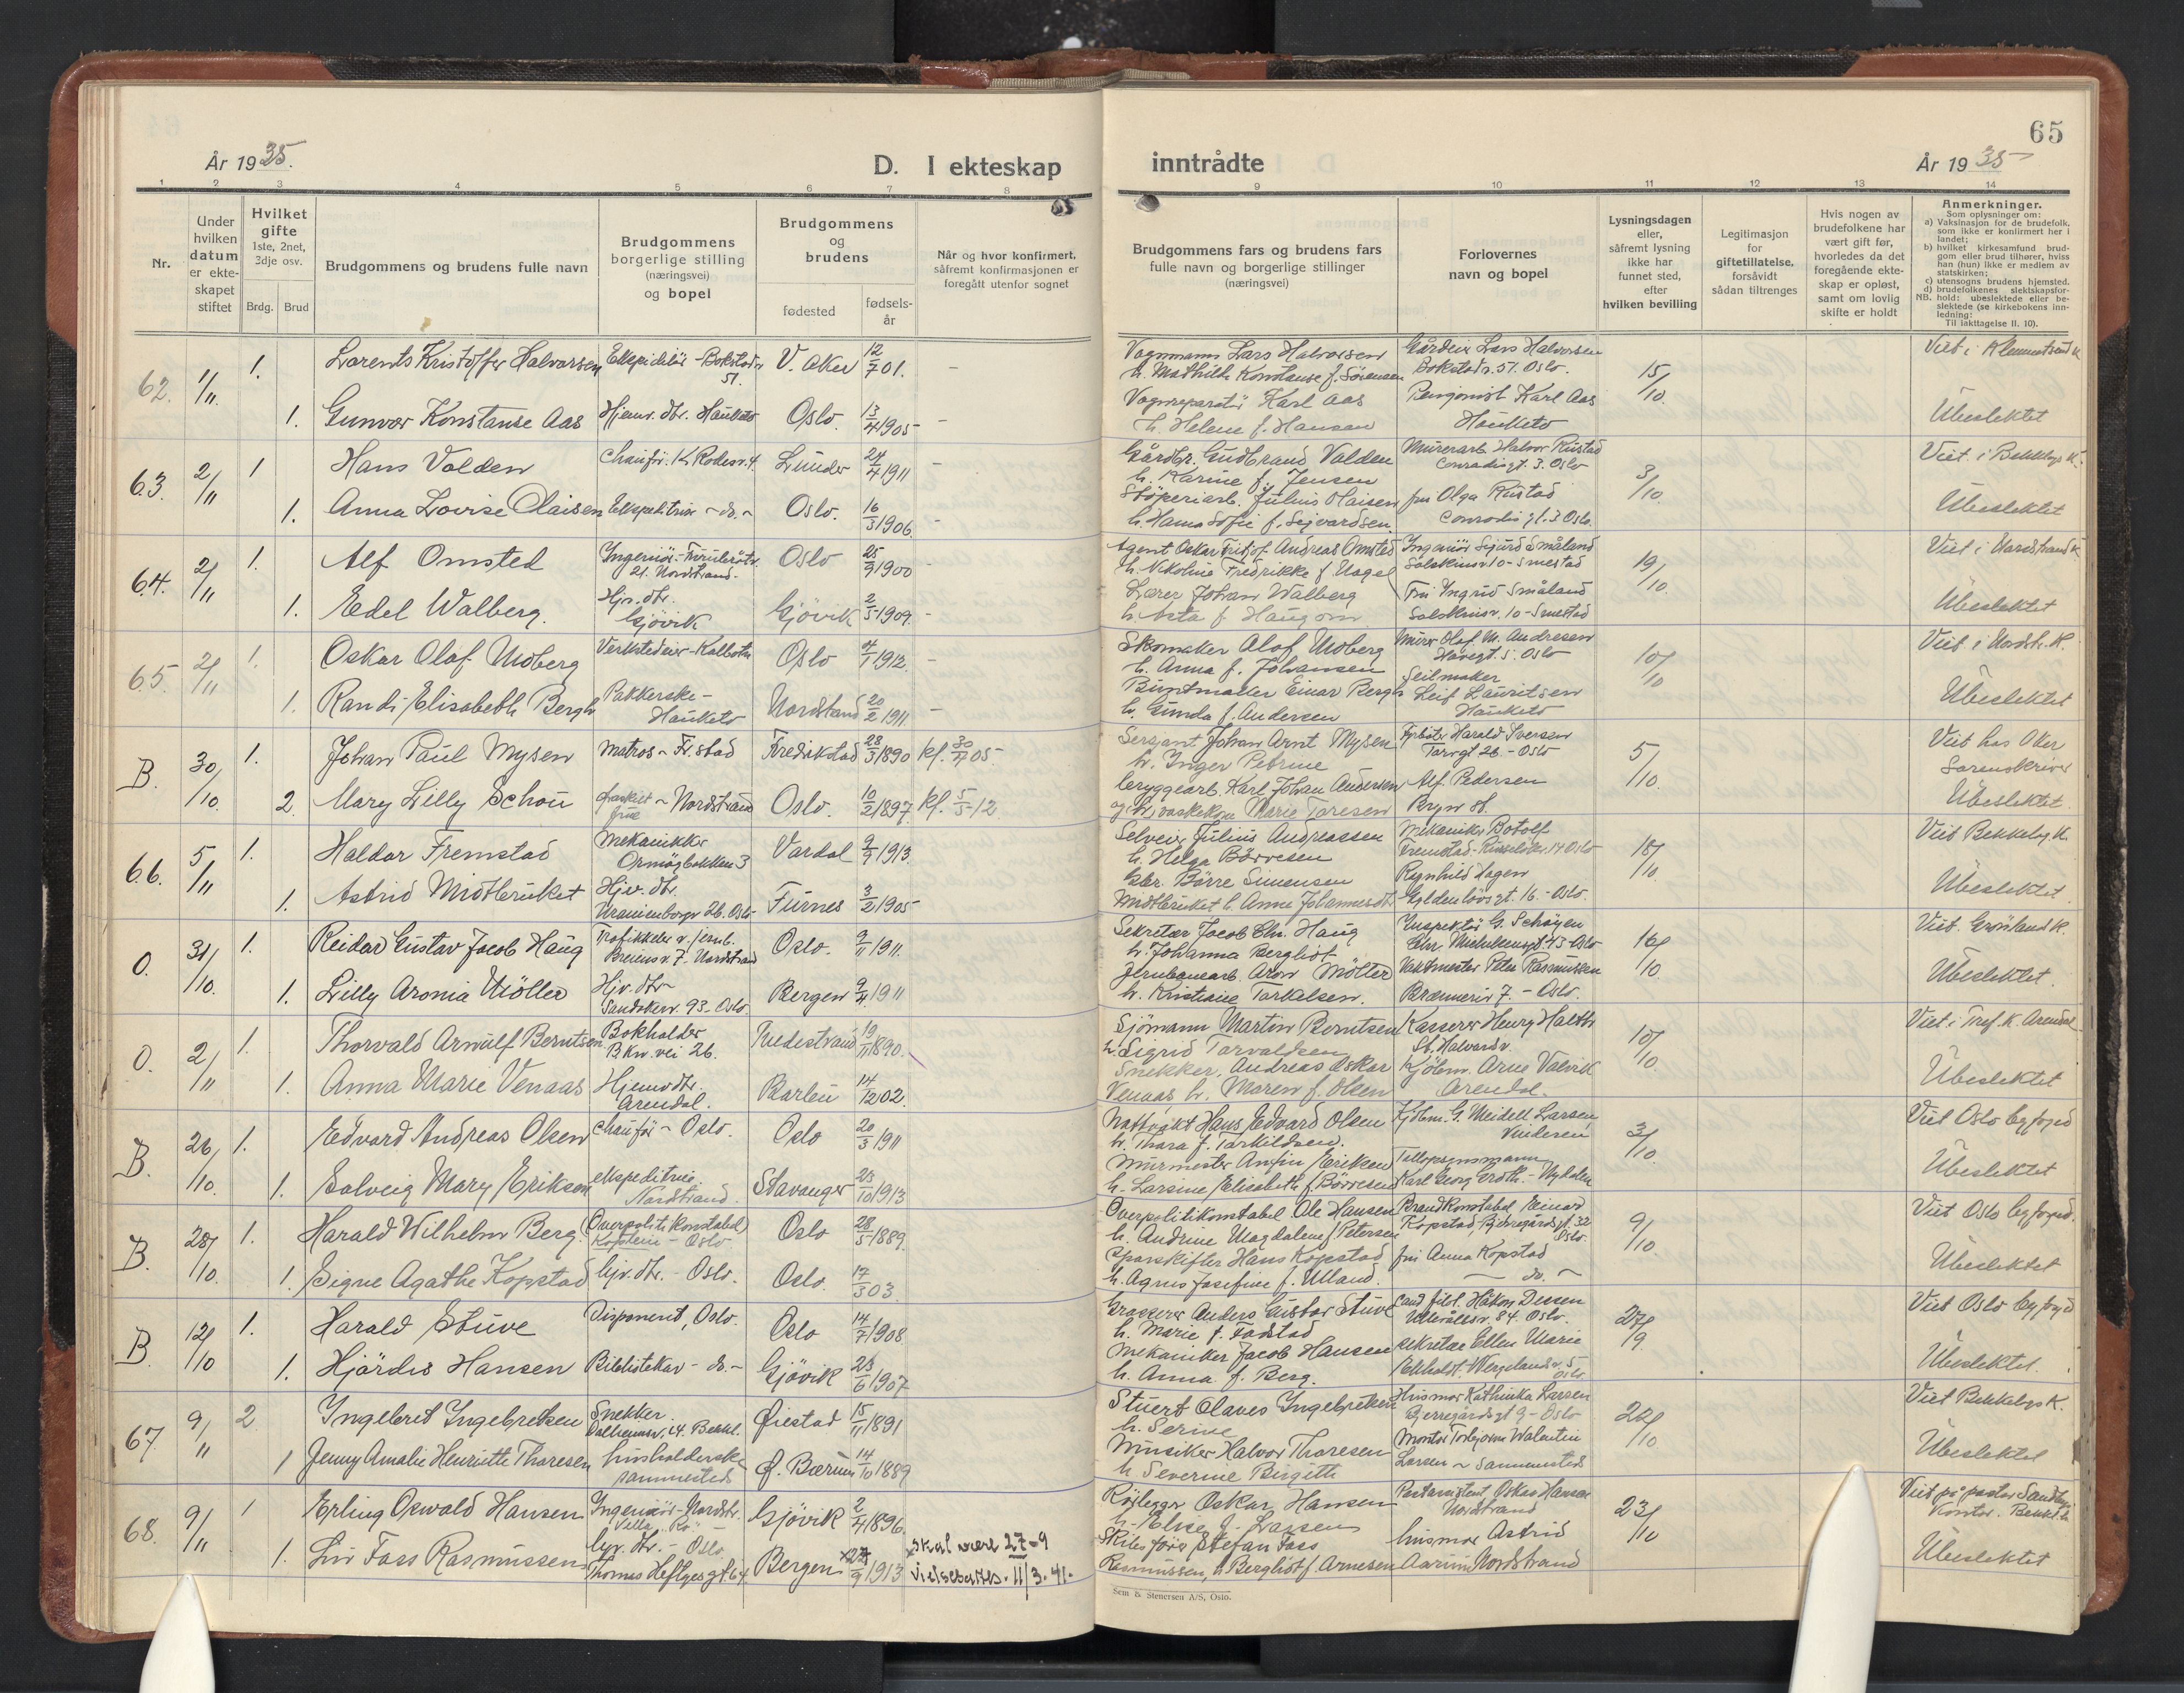 65
År 1935.
D. I ekteskap
inntrådte
År 1935
1 2 3 4 5 6 7 8
9 10 11 12 13 14
Nr.
Under hvilken datum er ekteskapet stiftet
Hvilket gifte
1ste, 2net, 3dje osv.
Brdg. Brud
Brudgommens og brudens fulle navn
Brudgommens borgerlige stilling (næringsvei) og bopel
Brudgommens og brudens
fødested
fødselsår
Når og hvor konfirmert, såfremt konfirmasjonen er foregått utenfor sognet
Brudgommens fars og brudens fars fulle navn og borgerlige stillinger (næringsvei)
Forlovernes navn og bopel
Lysningsdagen eller, såfremt lysning ikke har funnet sted, efter hvilken bevilling
Legitimasjon for giftetillatelse, forsåvidt sådan tiltrenges
Hvis nogen av brudefolkene har vært gift før, hvorledes da det foregående ekteskap er opløst, samt om lovlig skifte er holdt
Anmerkninger.
Som oplysninger om:
a) Vaksinasjon for de brudefolk, som ikke er konfirmert her i landet;
b) hvilket kirkesamfund brudgom eller brud tilhører, hviss han (hun) ikke er medlem av statskirken;
c) utensogns brudens hjemsted.
d) brudefolkenes slektskapsforhold: ubeslektede eller beslektede (se kirkebokens innledning:
NB.
Til iakttagelse II. 10).
62. 1/11. 1. Lorents Kristoffer Halvorsen Ekspeditør - Bokstadv. 51. V. Aker 12/7 01. -
Vognmann Lars Halvorsen Gårdeier Lars Halvorsen 15/10. Viet i Klemmetsrud K.
h. Mathilde Konstanse f. Sørensen Bokstadv. 51. Oslo.
1. Gunvor Konstanse Aas Hjemv. dtr. Hauketo Oslo. 13/4 1905 -
Vognreparatør Karl Aas Pensjonist Karl Aas
h. Helene f. Hansen Hauketo Ubeslektet
63. 2/11 1 Hans Volden Chauffør. K. Rodesv. 4. Lunder 24/4 1911 -
Gårdbr. Gudbrand Volden Murerarb. Halvor Rustad 3/10. Viet i Bekkelags K.
h. Karine f. Jensen Conradisgt. 3. Oslo
1. Anna Lovise Olaisen Ekspeditrise - do. - Oslo. 16/3 1906. -
Støperiarb. Julius Olaisen fru Olga Rustad
h. Hanna Sofie f. Sejvardsen. Conradis gt. 3 Oslo. Ubeslektet
64. 2/11 1. Alf Omsted Ingeniør - 21. Nordstrand. Oslo 25/9 1900 -
Agent Oskar Fritjof Andreas Omsted Ingeniør Sigurd Småland 19/10 Viet i Nordstrand K.
h. Nikoline Fredrikke f. Nagel Solskinsv. 10 - Smestad
1. Edel Walberg. Hjv. dtr. Gjøvik Gjøvik 2/5 1909. -
Lærer Johan Walberg Fru Ingrid Småland
h. Asta f. Haugom Solskinsv. 10 - Smestad Ubeslektet
65. 2/11 1. Oskar Olaf Moberg Verkstedeier - Kolbotn Oslo 4/1 1912. -
Skomaker Olof Moberg Murer Olaf M. Andresen 10/10 Viet i Nordstr. K.
h. Anna f. Johansen Havegt. 5. Oslo
1. Randi Elisabeth Bergh Pakkerske - Hauketo Nordstrand 20/2 1911 -
Buntmaker Einar Bergh Seilmaker Leif Lauritsen
h. Gunda f. Andersen Hauketo Ubeslektet
B. 30/10. 1. Johan Paul Mysen Matros - Fr.stad Fredrikstad 28/3 1890 kf. 30/4 05.
Sersjant Johan Arnt Mysen Fyrbøter Harald Iversen 5/10. Viet hos Aker
h. Inger Petrine Torvgt 26. - Oslo Sorenskriver
2. Mary Lilly Schou fraskilt frue - Nordstrand Oslo. 10/2 1897. kf. 5/5 - 12
Bryggearb. Karl Johan Andersen Alf. Pedersen
og h. vaskekone Marie Toresen Bryn st. Ubeslektet.
66. 5/11 1. Haldor Fremstad Mekanikker Ormøybakken 3 Vardal 9/9 1913.
Selveier Julius Andreassen Mekaniker Botolf 18/10. Viet Bekkelag K.
h. Helga Børresen Fremstad - 14 Oslo
1. Astrid Midtbruket Hjv. dtr. Uranienborgv 26. Oslo - Furnes 3/2 1905 -
Gbr. Børre Simensen Ragnhild Hagen
Midtbruket h. Anne Johannesdt. Gyldenløvsgt. 16. - Oslo. Ubeslektet.
O. 31/10. 1. Reidar Gustav Jacob Haug Trafikkelev v. jernb. Breiens v. 7. Nordstrand Oslo. 9/11 1911.
Sekretær Jacob Chr. Haug Inspektør G. Schøyen 16/10. Viet. Grønland K.
h. Johanna Bergliot Chr. Michelsensgt 43 - Oslo
1. Lilly Aronia Møller Hjv. dtr - Sandakerv. 93 - Oslo. Bergen 9/4 1911
Jernbanearb. Aron Møller Vaktmester Peter Rasmussen
h. Kristiane Torkelsen. Brenneriv 7. - Oslo. Ubeslektet.
O. 2/11 1. Thorvald Arnulf Berntsen Bokholder B.Kw. vei 26. Tvedestrand 19/11 1890.
Sjømann Martin Berntsen Kasserer Henry Holth 10/10. Viet i Tref. K. Arendal
h. Sigrid Torvaldsen St. Halvardsv.
1. Anna Marie Venaas Hjemv dtr. Arendal. 14/12 02.
Snekker, Andreas Oskar Kjøbm. Arne Valvik
Venaas h. Maren f. Olsen Arendal. Ubeslektet
B. 26/10. 1. Edvard Andreas Olsen Chauffør - Oslo. Oslo 20/3 1911
Nattvakt Hans Edvard Olsen Kjøbm. G. Meidell Larsen 3/10. Viet Oslo byfoged
h. Thora f. Torkildsen. Vinderen
1. Solveig Mary Erikson ekspeditrise. Nordstrand. Stavanger 25/10 1913
Murmester Anfin Eriksen Tillopsmann
h. Larsine Elisabeth f. Børresen Karl Georg Groth. - Nydalen Ubeslektet
B. 28/10. 1. Harald Wilhelm Berg. Overpolitikonstabel - Oslo Oslo 28/5 1889.
Overpolitikonstabel Ole Hansen Brandkonstabel Einar 9/10. Viet Oslo byfoged.
h. Andrine Magdalene f. Petersen Kopstad, Bjerregårdsgt. 32 Oslo.
1. Signe Agathe Kopstad hjv. dtr. - Oslo. Oslo. 17/3 03.
Sporskifter Hans Kopstad fru Anna Kopstad
h. Agnes Josefine f. Ulland. - do. - Ubeslektet
B. 12/10 1. Harald Stuve Disponent, Oslo. Oslo 14/7 1908.
Grosserer Anders Gustav Stuve Cand. filol. Håkon Dessen 27/9. Viet Oslo byfoged
h. Marie f. Fodstad Ullevålsv. 84. Oslo.
1. Hjørdis Hansen Bibliotekar - do. - Gjøvik 23/6 1907
Mekaniker Jacob Hansen sekretær Ellen Marie
h. Anna f. Berg. Wergelandsv. 5 - Oslo Ubeslektet.
67. 9/11 2. Ingebret Ingebretsen Snekker. 14. Bekkl. Øiestad 15/11 1891
Stuert Olaves Ingebretsen Husmor Kathinka Larsen 22/10 Viet Bekkelags K.
h. Serine Bjerregårdsgt 9 - Oslo
1 Jenny Amalie Henriette Thoresen husholderske sammested Ø. Bærum 14/10 1889
Musiker Halvor Thoresen Montør Torbjørn Walentin
h. Severine Birgitte Larsen - Sammensteds Ubeslektet
68. 9/11 1 Erling Oswald Hansen Ingeniør - Nordstr. Villa Ro - Gjøvik 2/4 1896.
Rørlegger Oskar Hansen Postassistent Oskar Hansen 23/10 Viet på pastor Sandbergs
h. Elise f. Larsen Nordstrand Kontor. Bekkel.
1. Liv Foss Rasmussen hjv. dtr. - Oslo Thomas Heftyesgt 64. Bergen x 27/9 1913 x Skal være 27-9 vielsesattes. 11/3-41.
Skibsfører Stefan Foss husmor Astrid
Rasmussen, h Bergliot f. Arnesen Aarum Nordstrand Ubeslektet
Sem & Stenersen A/S, Oslo.